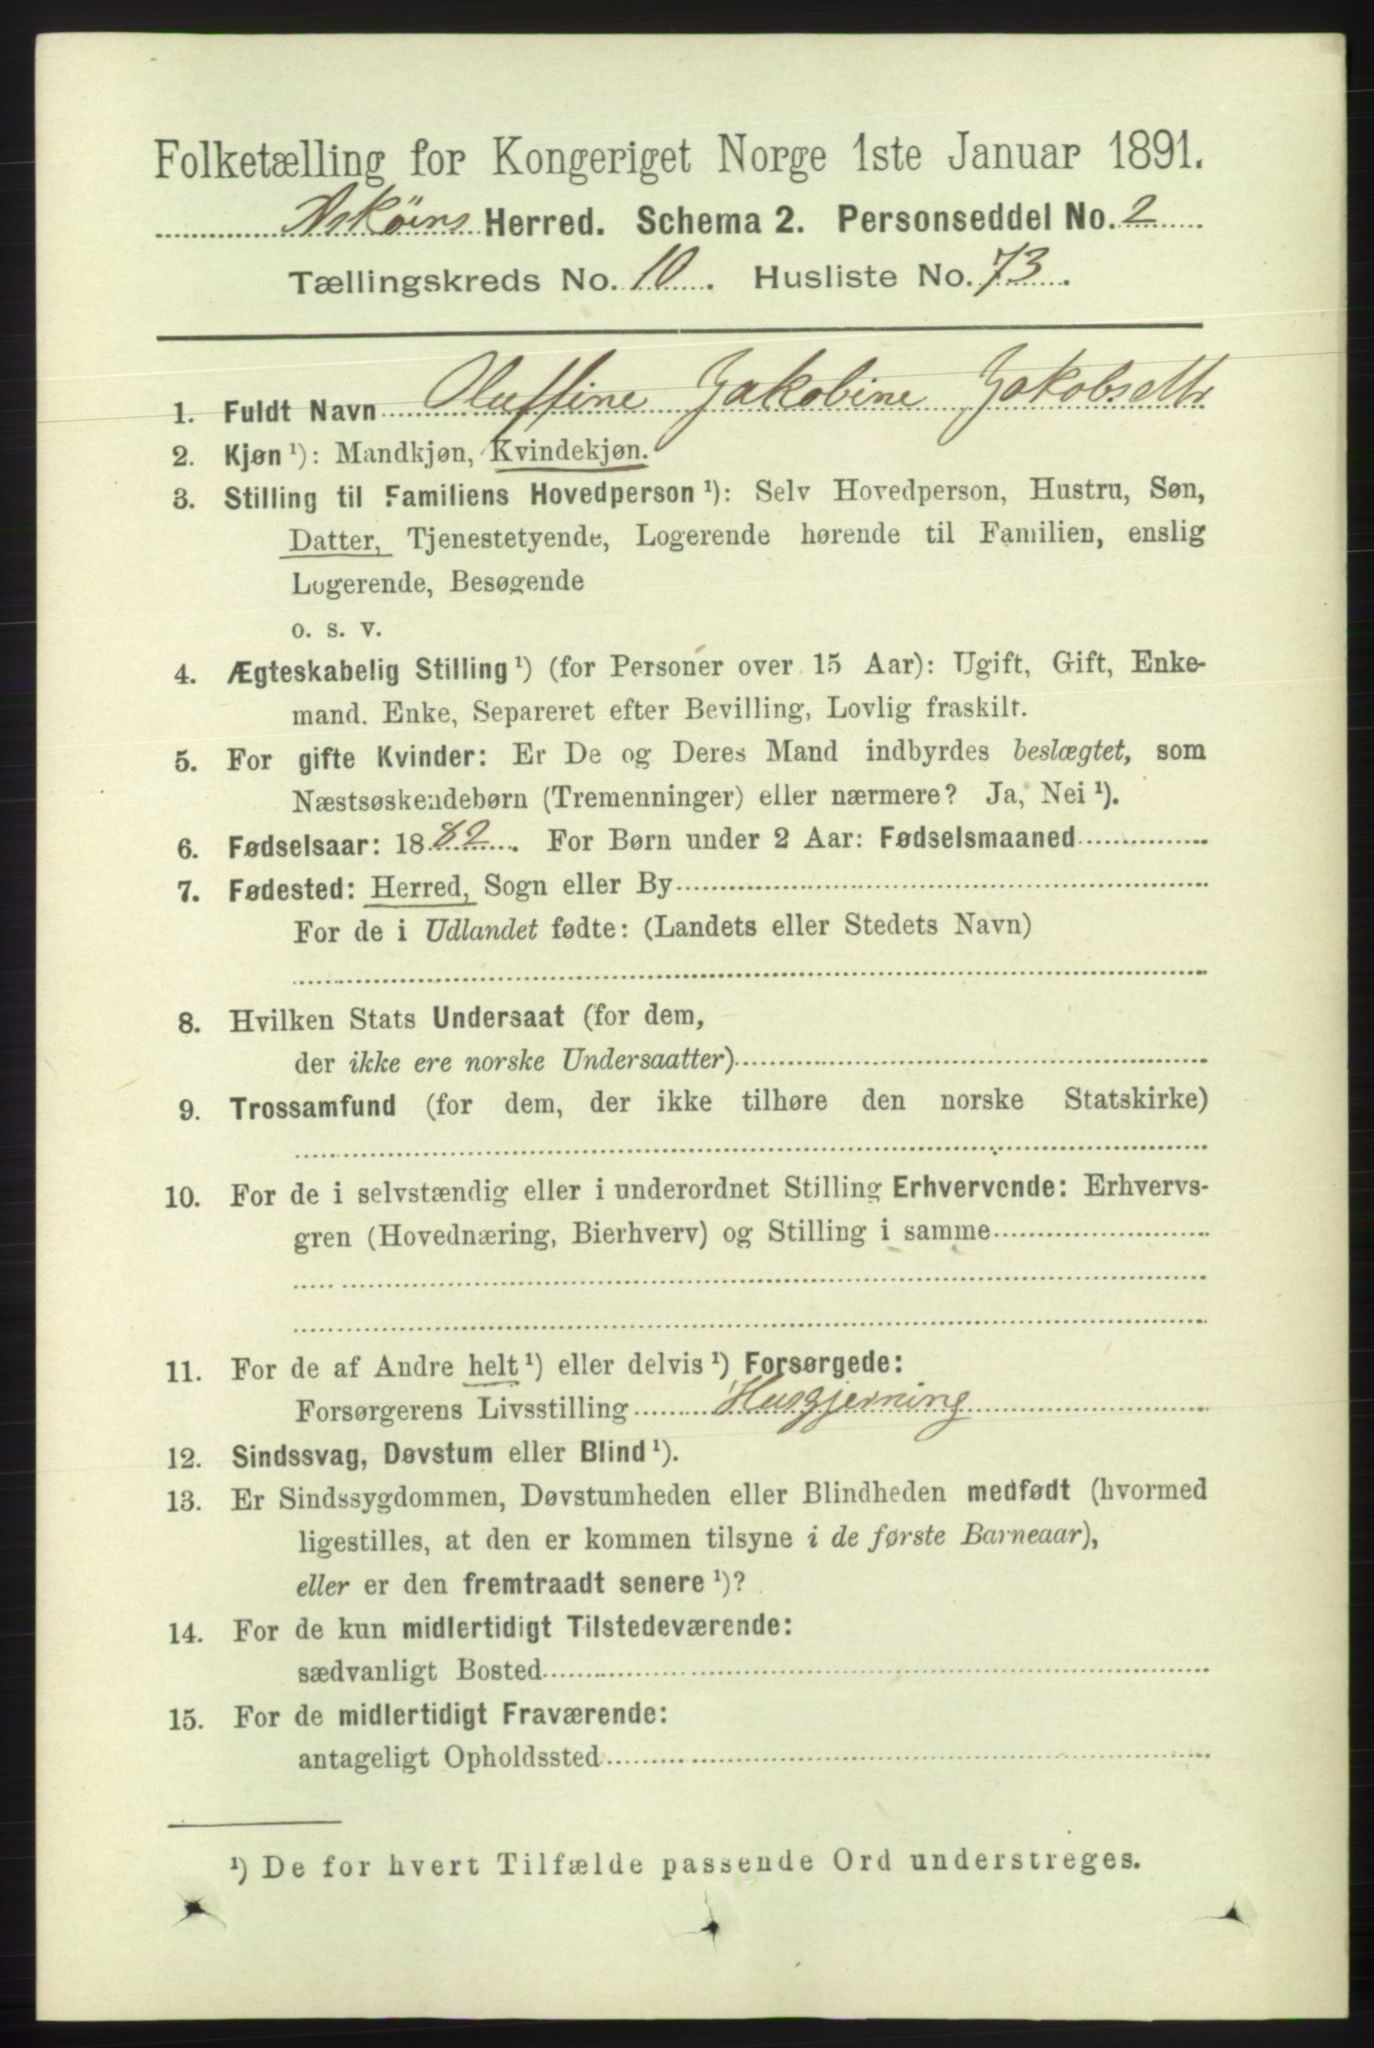 Folketælling for Kongeriget Norge 1ste Januar 1891.
Askøens Herred. Schema 2. Personseddel No. 2
Tællingskreds No. 10. Husliste No. 73.
1. Fuldt Navn Oluffine Jakobine Jakobsdttr
2. Kjøn ¹): Mandkjøn, Kvindekjøn.
3. Stilling til Familiens Hovedperson ¹): Selv Hovedperson, Hustru, Søn,
Datter, Tjenestetyende, Logerende hørende til Familien, enslig
Logerende, Besøgende
o. s. v.
4. Ægteskabelig Stilling ¹) (for Personer over 15 Aar): Ugift, Gift, Enke-
mand. Enke, Separeret efter Bevilling, Lovlig fraskilt.
5. For gifte Kvinder: Er De og Deres Mand indbyrdes beslægtet, som
Næstsøskendebørn (Tremenninger) eller nærmere? Ja, Nei ¹).
6. Fødselsaar: 1882. For Børn under 2 Aar: Fødselsmaaned
7. Fødested: Herred, Sogn eller By
For de i Udlandet fødte: (Landets eller Stedets Navn)
8. Hvilken Stats Undersaat (for dem,
der ikke ere norske Undersaatter)
9. Trossamfund (for dem, der ikke tilhøre den norske Statskirke)
10. For de i selvstændig eller i underordnet Stilling Erhvervende: Erhvervs-
gren (Hovednæring, Bierhverv) og Stilling i samme
11. For de af Andre helt ¹) eller delvis ¹) Forsørgede:
Forsørgerens Livsstilling Husgjerning
12. Sindssvag, Døvstum eller Blind ¹).
13. Er Sindssygdommen, Døvstumheden eller Blindheden medfødt (hvormed
ligestilles, at den er kommen tilsyne i de første Barneaar),
eller er den fremtraadt senere ¹)?
14. For de kun midlertidigt Tilstedeværende:
sædvanligt Bosted
15. For de midlertidigt Fraværende:
antageligt Opholdssted
¹) De for hvert Tilfælde passende Ord understreges.